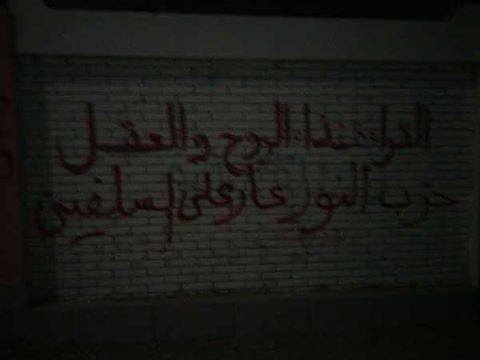 القراءة غذاء الروح والعقل
حزب النور عار على السلفيين